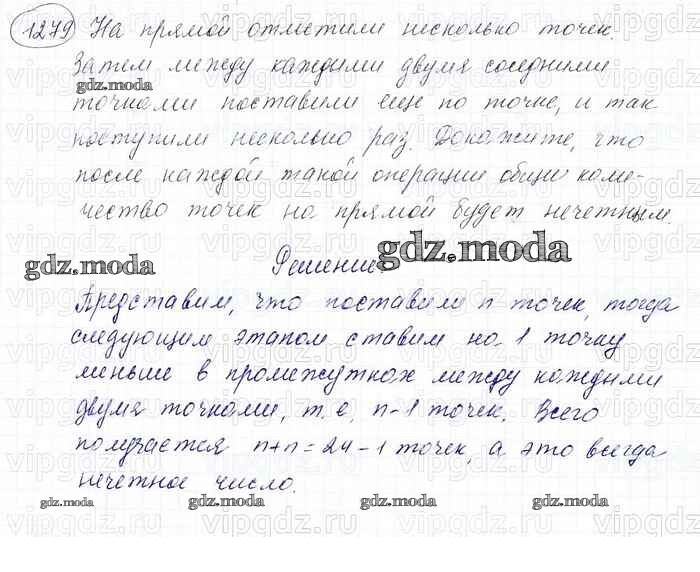 1279 На прямой отметили несколько точек.
Затем между каждыми двумя соседними
точками поставили еще по точке, и так
поступили несколько раз. Докажите, что
после каждой такой операции общее коли-
чество точек на прямой будет нечетным.
Решение.
Представим, что поставили n точек, тогда
следующим этапом ставим на 1 точку
меньше в промежутках между каждыми
двумя точками, т.е. n-1 точек. Всего
получается n+n=2n-1 точек, а это всегда
нечетное число.
gdz.moda
gdz.moda
gdz.moda
gdz.moda
gdz.moda
gdz.moda
gdz.moda
vipgdz.ru